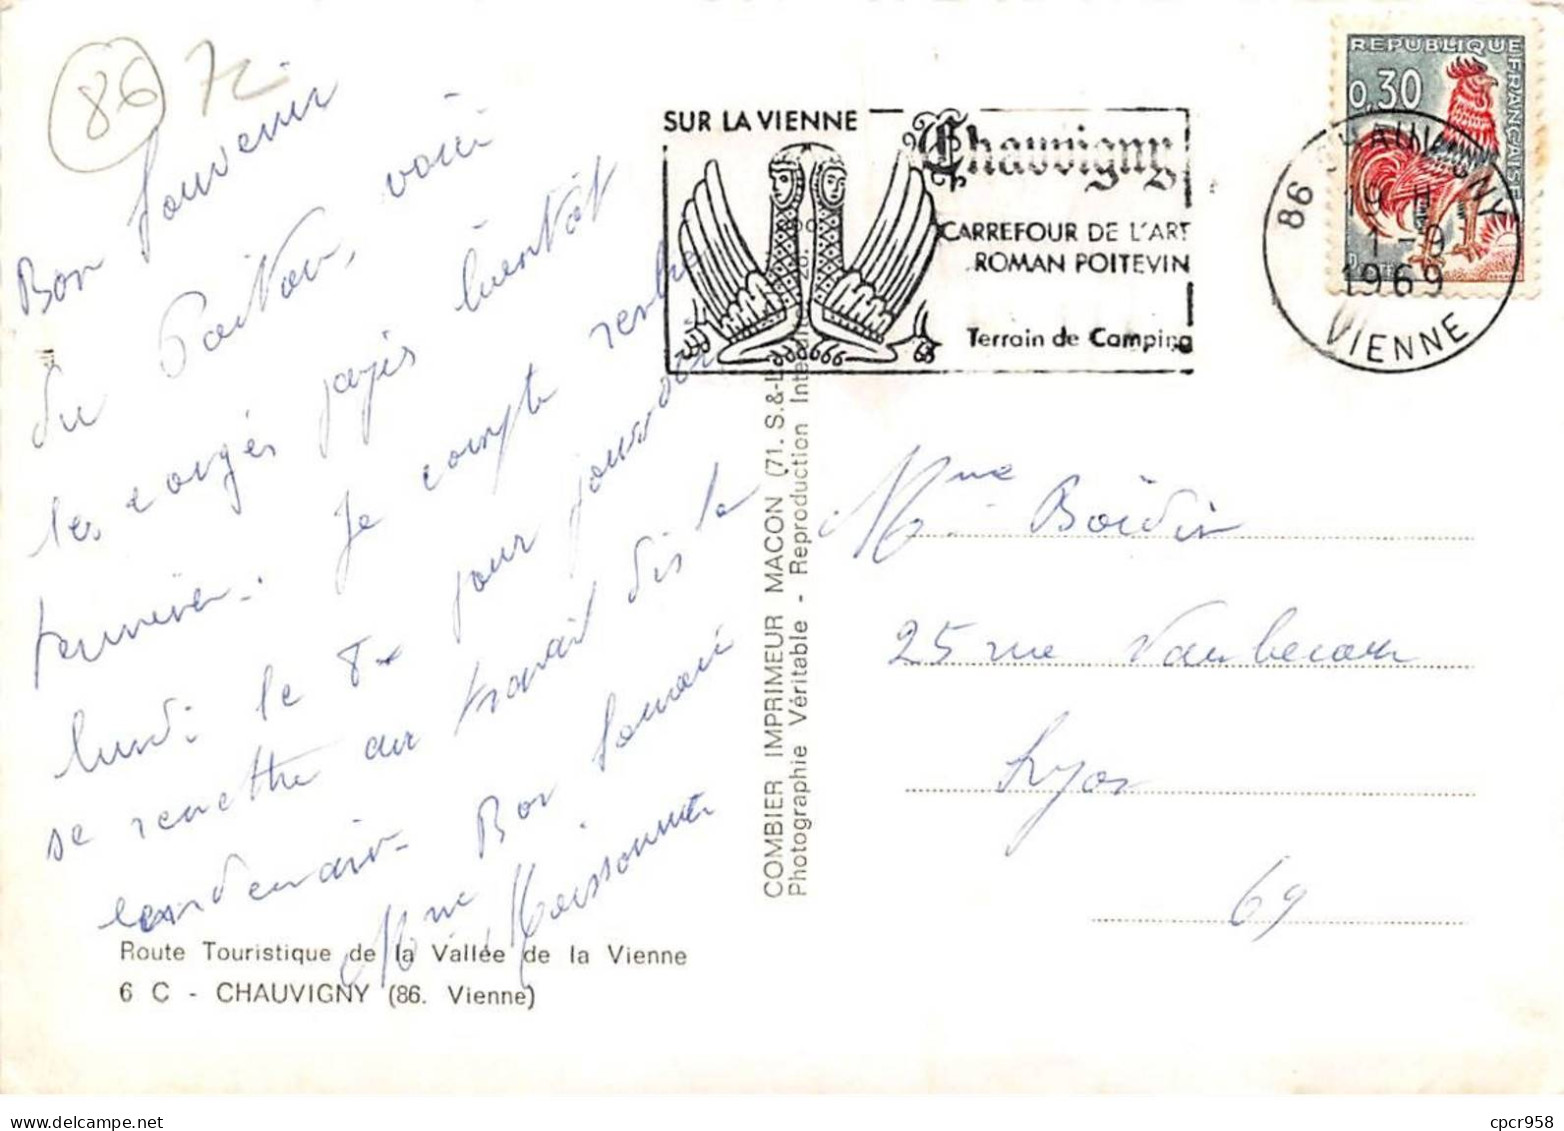 86
72
Bon Souvenir
du Poitou, voici
les congés payés bientôt
terminer. Je compte rentre
lundi le 8 pour pour
se remettre au travail dis le
lendemain. Bon Souvenir
Mme Moissonnier
Route Touristique de la Vallée de la Vienne
6 C - CHAUVIGNY (86. Vienne)
COMBIER IMPRIMEUR MACON (71. S.&-L
Photographie Véritable - Reproduction
SUR LA VIENNE
Chauvigny
CARREFOUR DE L'ART
ROMAN POITEVIN
Terrain de Camping
REPUBLIQUE FRANÇAISE
0,30
86 CHAUVIGNY
19 H
1-9
1969
VIENNE
Mme Boïdin
25 rue Vaubecour
Lyon
69
cpcr958